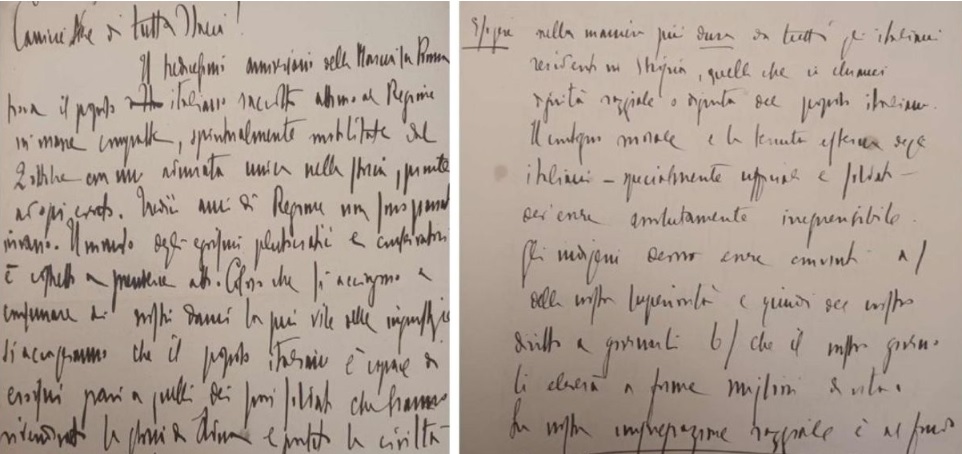 Camicie Nere di tutta Italia!
Il tredicesimo anniversario della Marcia su Roma
trova il popolo italiano raccolto attorno al Regime
in masse compatte, spiritualmente mobilitate dal
2 ottobre con una adunata unica nella storia, pronte
ad ogni evento. Tredici anni di Regime non sono passati
invano. Il mondo degli egoismi plutocratici e conservatori
è costretto a prenderne atto. Coloro che si accingono a
consumare ai nostri danni la più vile delle ingiustizie
si accorgeranno che il popolo italiano è capace di
eroismi pari a quelli dei suoi soldati che hanno
rivendicato la gloria di Adua e portato la civiltà
Esigere nella maniera più dura da tutti gli italiani
residenti in Etiopia, quella che si chiama
dignità razziale o dignità del popolo italiano.
Il contegno morale e la tenuta esterna degli
italiani - specialmente ufficiali e soldati -
dev'essere assolutamente irreprensibile.
Gli indigeni devono essere convinti a)
della nostra superiorità e quindi del nostro
diritto a governarli b) che il nostro governo
li eleverà a forme migliori di vita.
La nostra impreparazione razziale è al fondo